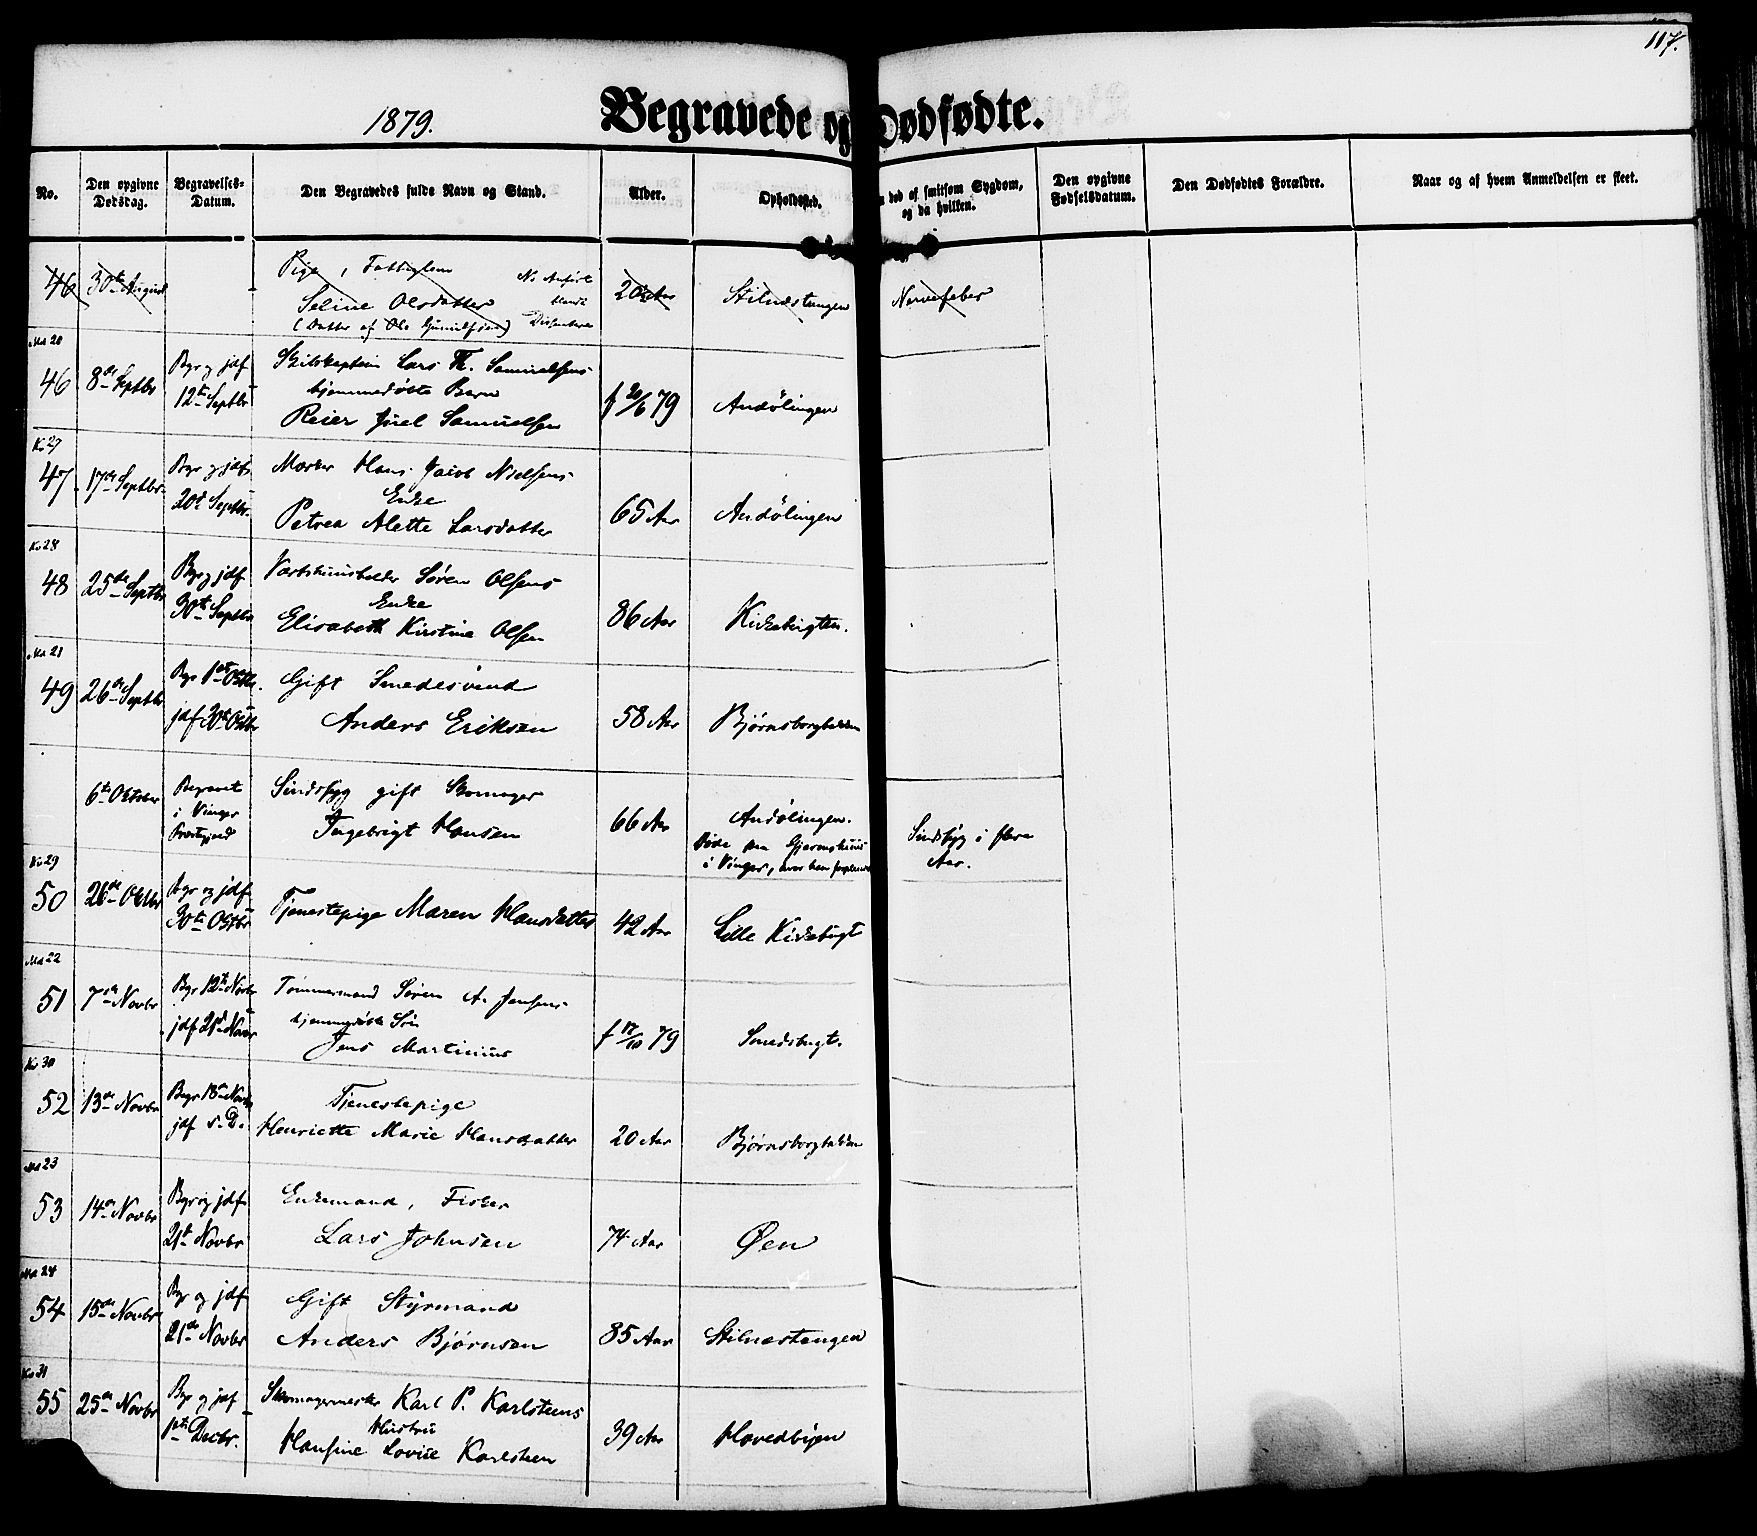 117.
1879.
Begravede og Dødfødte.
No. Den opgivne Dødsdag. Begravelses-Datum. Den Begravedes fulde Navn og Stand. Alder. Opholdssted. død af smitsom Sygdom, og da hvilken. Den opgivne Fødselsdatum. Den Dødfødtes Forældre. Naar og af hvem Anmeldelsen er skeet.
46 30te August Pige, Fattiglem
Seline Olsdatter 20 Aar Stilnestangen Nervefeber
(Datter af Ole Gunulfsen) No Anført blandt Dissentere
Md 20
46 8de Septbr Bgr og jdf Skibskaptein Lars Th. Samuelsens
12te Septbr hjemmedøbte Barn f 20/6 79 Andølingen
Reier Juel Samuelsen
Kv 27
47 17de Septbr Bgr og jdf Hans Jacob Nielsens
20de Septbr. Enke
Petrea Alette Larsdatter 65 Aar Andølingen
Kv 28
48 25de Septbr Bgr og jdf Vertshuusholder Søren Olsens
30te Septbr Enke
Elisabeth Kirstine Olsen 86 Aar Kirkebugten.
Md 21
49 26de Septbr Bgr 1ste Oktbr. Gift Smedesvend
jdf 30te Oktbr Anders Eriksen 58 Aar Bjørnsborgbakken
6te Oktober Begravet i Vinger Sindssyg gift Skomager
Ingebrigt Hansen 66 Aar Andølingen. Sindssyg i flere Aar.
Døde paa i Vinger, hvor han
Kv 29
50 26de Oktbr Bgr og jdf Tjenestepige Maren Hansdatter 42 Aar Lille Kirkebugt
30te Oktbr
Md 22
51 7de Novbr Bgr 12te Novbr Tømmermand Søren A. Jensens
jdf 21de Novbr hjemmedøbte Søn
Jens Martinius f 17/10 79 Smedsbugt.
Kv 30
52 13de Novbr Bgr 18de Novbr Tjenestepige
jdf s. D. Henriette Marie Hansdatter 20 Aar Bjørnsborgbakken
Md 23
53 14de Novbr Bgr og jdf Enkemand, Fisker
21de Novbr Lars Johnsen 74 Aar Øen
Md 24
54 15de Novbr Bgr og jdf Gift Styrmand
21de Novbr Anders Bjørnsen 85 Aar Stilnestangen
Kv 31
55 25de Novbr Bgr og jdf Skomagermester Karl P. Karlsteens
1ste Decbr. Hustru
Hansine Lovise Karlsteen 39 Aar Hovedbyen